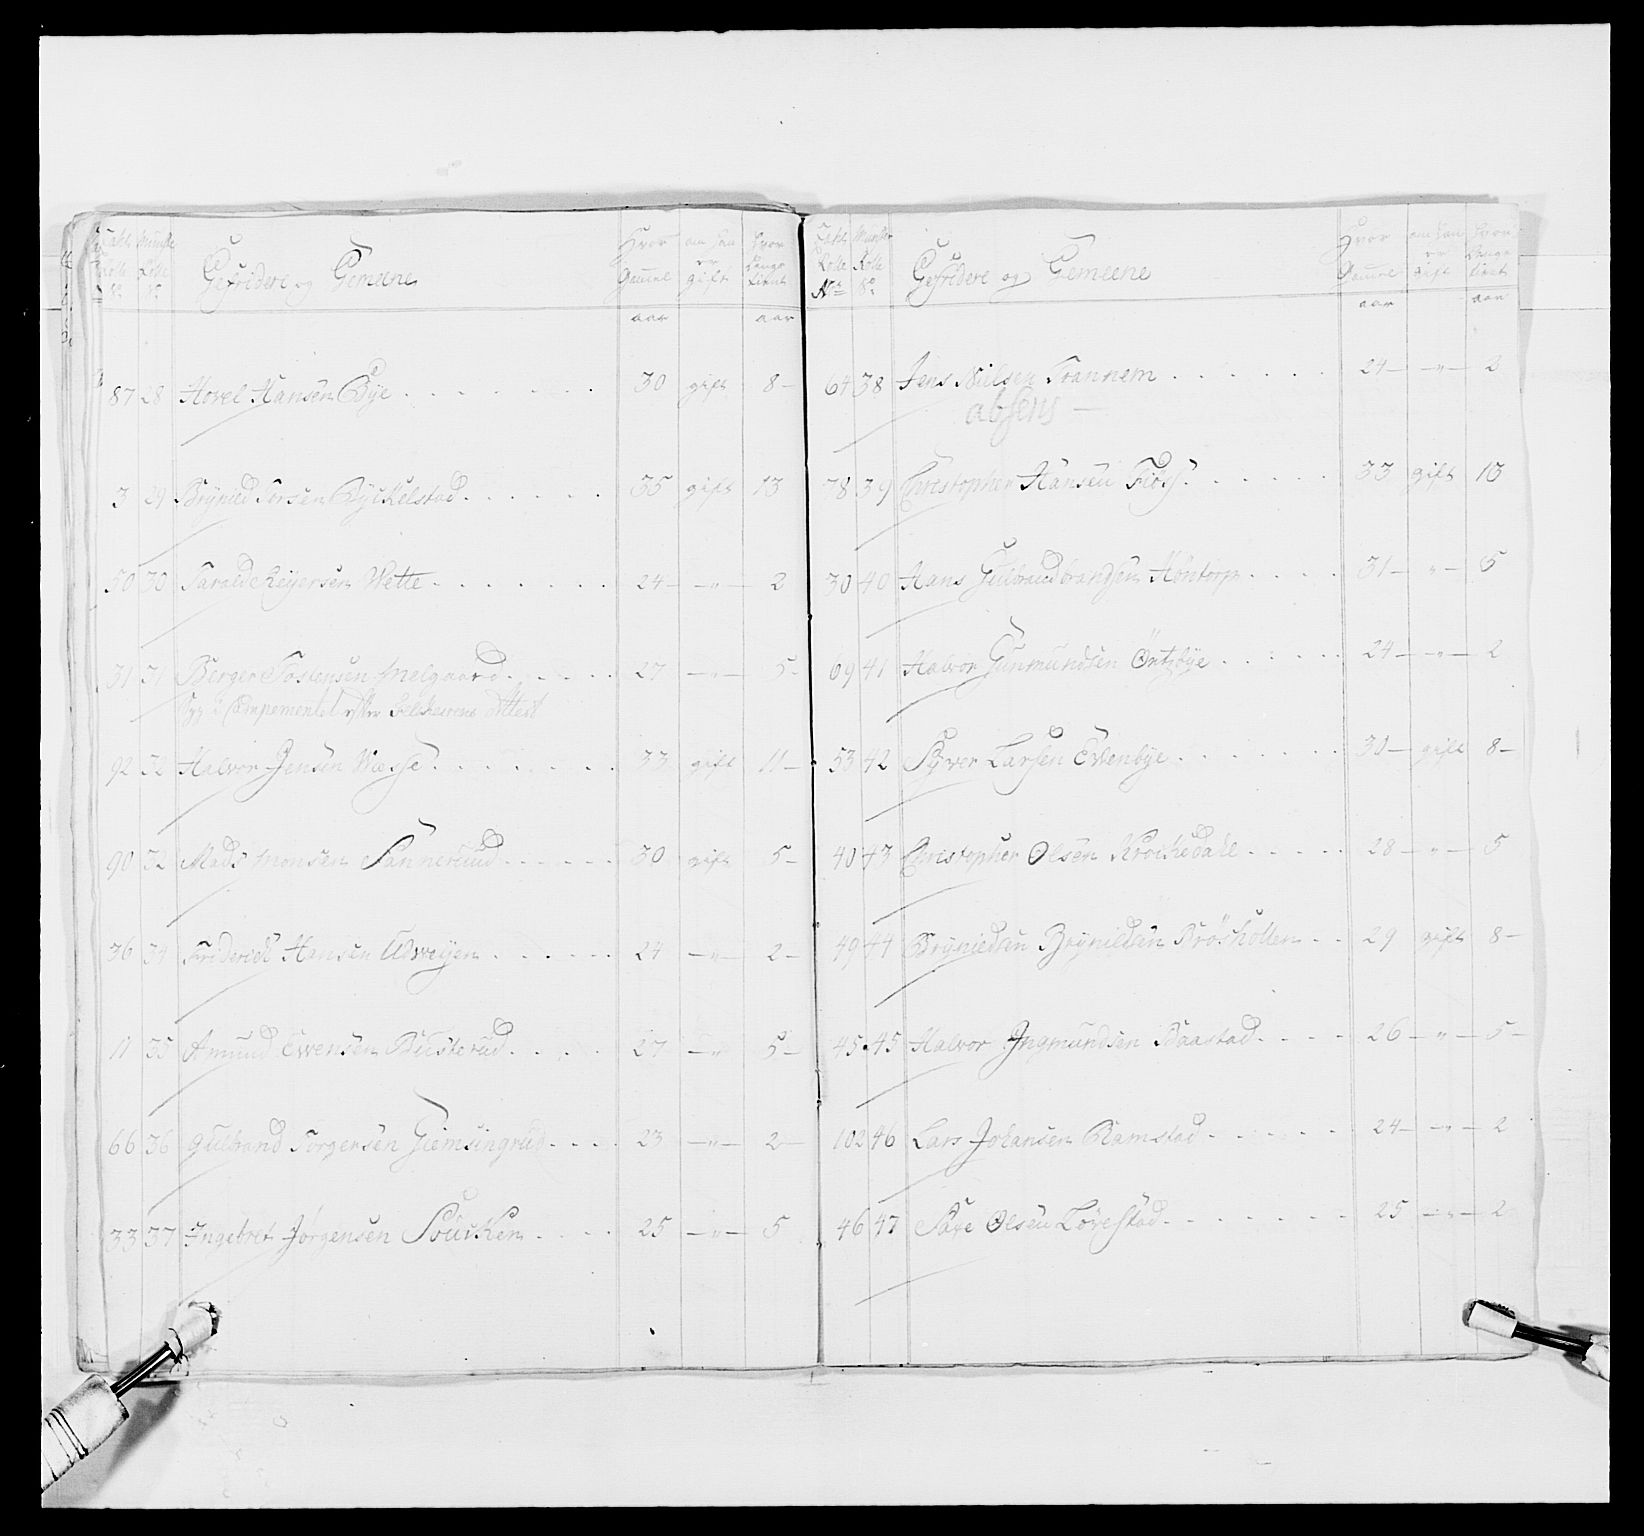 Rolle No. Rolle No. Gefridere og Gemeene Hvor Gamel om han er gift hvor lenge tient
aar aar
87 28 Hovel Hansen Bye 30 gift 8
3 29 Brynild Torsen Byckelstad 35 gift 13
50 30 Tarald Reyersen Wette 24 - " - 2
31 31 Berger Tostensen Melgaard 27 - " - 5
Syg i Campementet efter Feltskierens Attest
92 32 Halvor Jensen Wasse 33 gift 11
90 32 Mads Monsen Sannerud 30 gift 5
36 34 Friderick Hansen Udweyen 24 - " - 2
11 35 Amund Evensen Busterud 27 - " 5
66 36 Gulbrand Torgersen Giemsingrud 23 - " - 2
33 37 Ingebret Jørgensen 25 - " - 5
Rolle No. Munster Rolle No. Gefridere og Gemeene Hvor Gamel om han er gift hvor lenge tient
aar aar
64 38 Jens Nielsen Trannem 24 - " - 2
absens
78 39 Christopher Hansen Fiøs 33 gift 13
30 40 Hans Gulbrandbrandsen Høntorp 31 - " - 5
69 41 Halvor Gunmundsen 24 - " - 2
53 42 Syver Larsen Evenbye 30 gift 8
40 43 Christopher Olsen Krockedahl 28 - " - 5
49 44 Bryniedsen Brynildsen Brøshollen 29 gift 8
45 45 Halvor Ingmundsen Baastad 26 - " - 5
102 46 Lars Johansen Ramstad 24 - " - 2
46 47 Olsen Lørestad 25 - " - 2